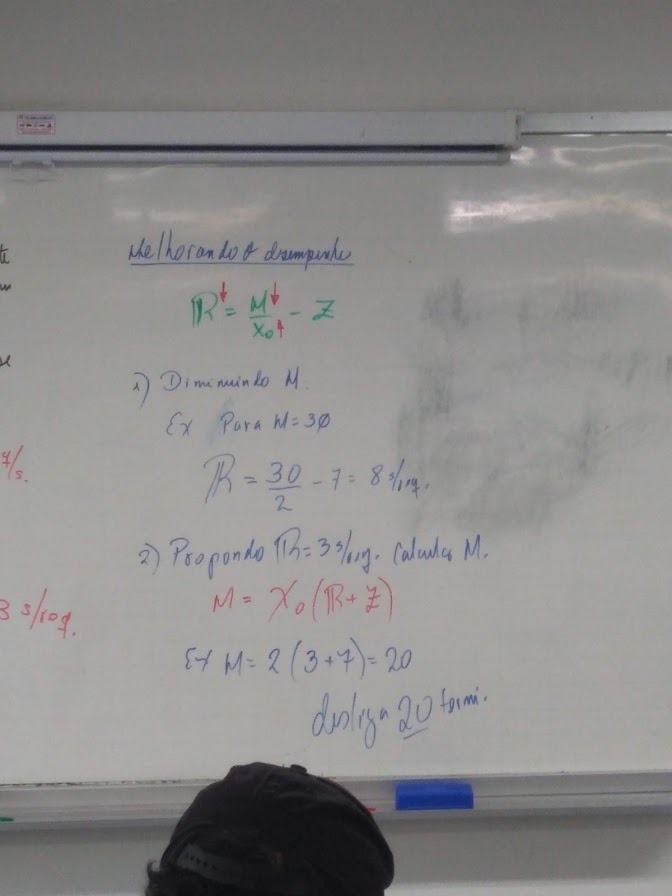 te
Melhorando o desempenho
R↓ = M↓/X₀↑ - Z
se
1) Diminuindo M.
Ex Para M=30
7/s.
R = 30/2 - 7 = 8 s/req.
2) Propondo R=3 s/req. Calcular M.
M = X₀(R+Z)
3 s/req.
Ex M = 2(3+7) = 20
desliga 20 termi.